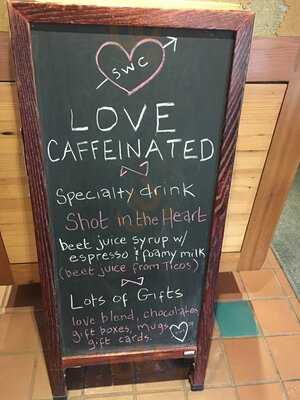 SWC
LOVE
CAFFEINATED
Specialty drink
Shot in the Heart
beet juice syrup w/
espresso & foamy milk
(beet juice from Ticos)
Lots of Gifts
love blend, chocolates
gift boxes, mugs
gift cards.